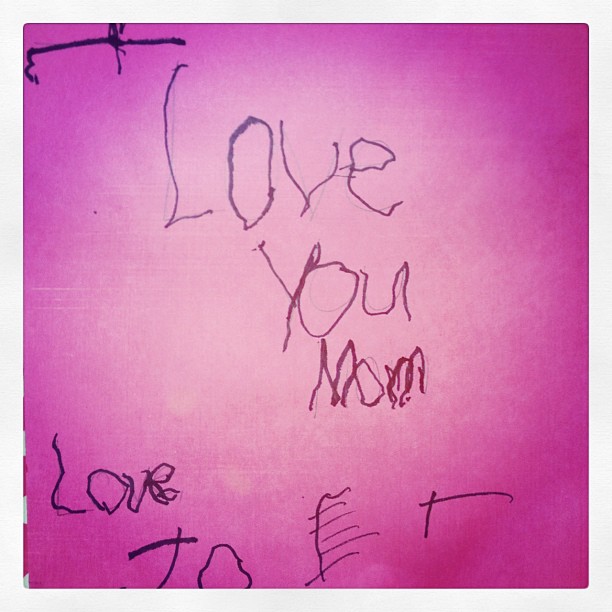 I
Love
You
Mom
Love